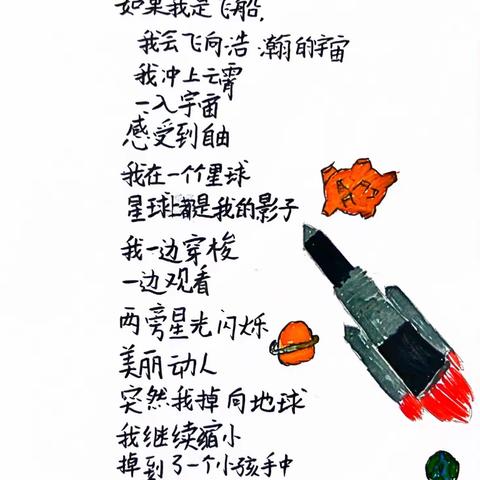 如果我是飞船，
我会飞向浩瀚的宇宙
我冲上云霄
一入宇宙
感受到自由
我在一个星球
星球上都是我的影子
我一边穿梭
一边观看
两旁星光闪烁
美丽动人
突然我掉向地球
我继续缩小
掉到了一个小孩手中